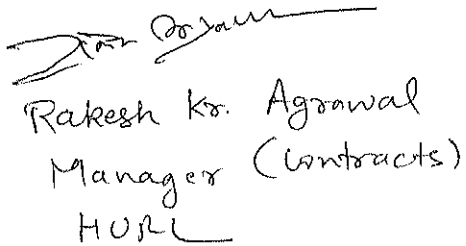 Rakesh Kr. Agrawal
Manager (Contracts)
HURL